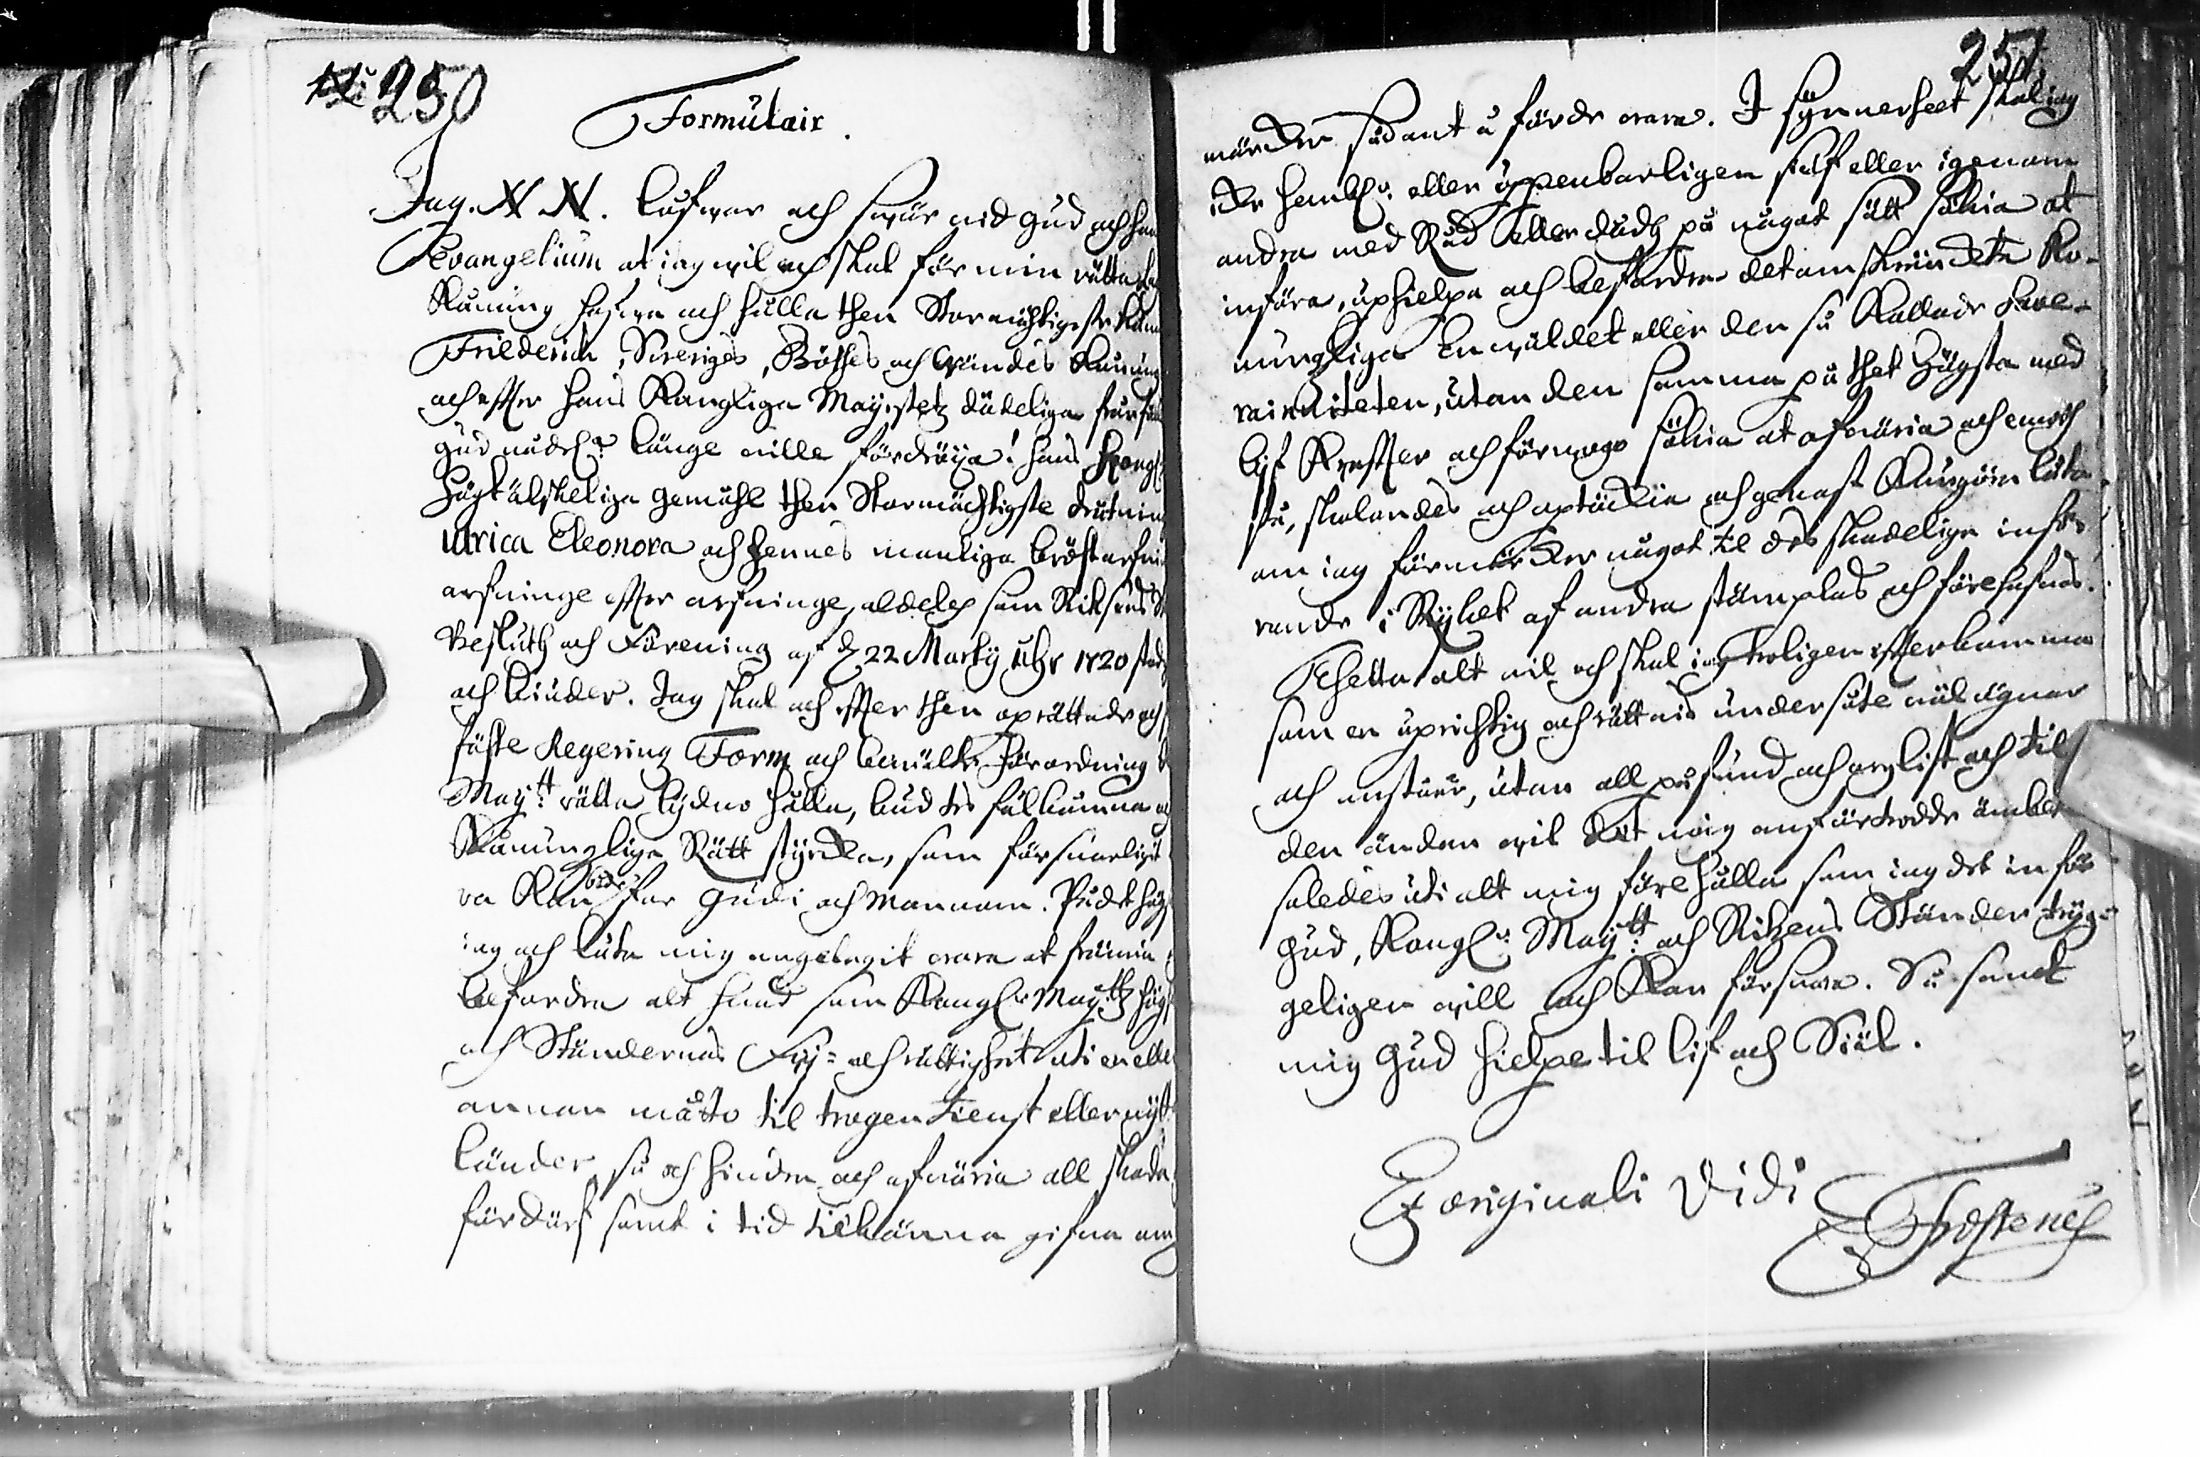 250
Formulair.
Jag. N N. lofwar och swär wid Gud och hans
Evangelium at jag wil och skal för min rätta
Konung hafwa och hålla then Stormächtigste
Friederich, Sveriges, Göthes och Wändes Konung
och effter Hans Kongliga Mayestetz dödeliga frånfäl
Gud nådel:n länge wille fördröja! Hans Kongl:
Högtälskeliga Gemåhl then Stormächtigste Drotning
Ulrica Eleonora och Hennes manliga bröstarfwin
arfwinge effter arfwinge, aldeles som Riksens
Besluth och Förening af d 22 Marty Åhr 1720
och liuder. Jag skal och effter then oprättade och
fäste Regering Form och Förordning
May:tt rätta lydno hålla, bud des fulkomna
Konungliga Rätt styrckia, som förswarligit
ra kan både för Gudi och Mannom. På det
jag och låta mig angelägit wara at främia
befordra alt hwad som Kongl:e May:ttz
och Ständernas Fri- och rättighet uti en eller
annan måtto til tragen tienst eller nytt
länder så och hindra och afwäria all skada
fördärf samt i tid tilkänna gifwa om
251
märcker sådant å färde wara. I synnerheet skal jag
eller uppenbarligen sielf eller igenom
andra med Råd eller dådh på något sätt sökia at
införa, uphielpa och befordra det omskrifwdete Ko-
nungliga Enwäldet eller den så kallade Souve-
rainiteten, utan den samma på thet högsta med
lijf kraffter och förmågo sökia at afwäria och emoth
stå, skolandes och uptäckia och genast kungöra låta
om jag förmärcker något til des skadeliga infö-
rande i Ryket af andra stämplas och förehafwas.
Thetta alt wil och skal jag troligen effterkomma
som en uprichtig och rättwis undersåte wäl ägnar
och anstår, utan all påfund och arglist och til
den ändan wil det mig anförtrodde ämbet
soledes uti alt mig förehålla som jag det inför
Gud, Kongl:e May:tt och Rikens Ständer tryg-
geligen will och kan förswara. Så sandt
mig Gud hielpe til lif och Siäl.
Ex originali Vidi